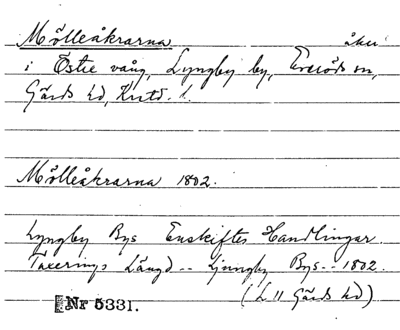 Mölleåkrarna åker
i Östre vång, Lyngby by, Everöds sn,
Gärds hd, Krstd. l.
Mölleåkrarna 1802.
Lyngby Bys Enskiftes Handlingar
Taxerings Längd -- Ljungby Bys -- 1802.
(L 11 Gärds hd)
Nr 5331.